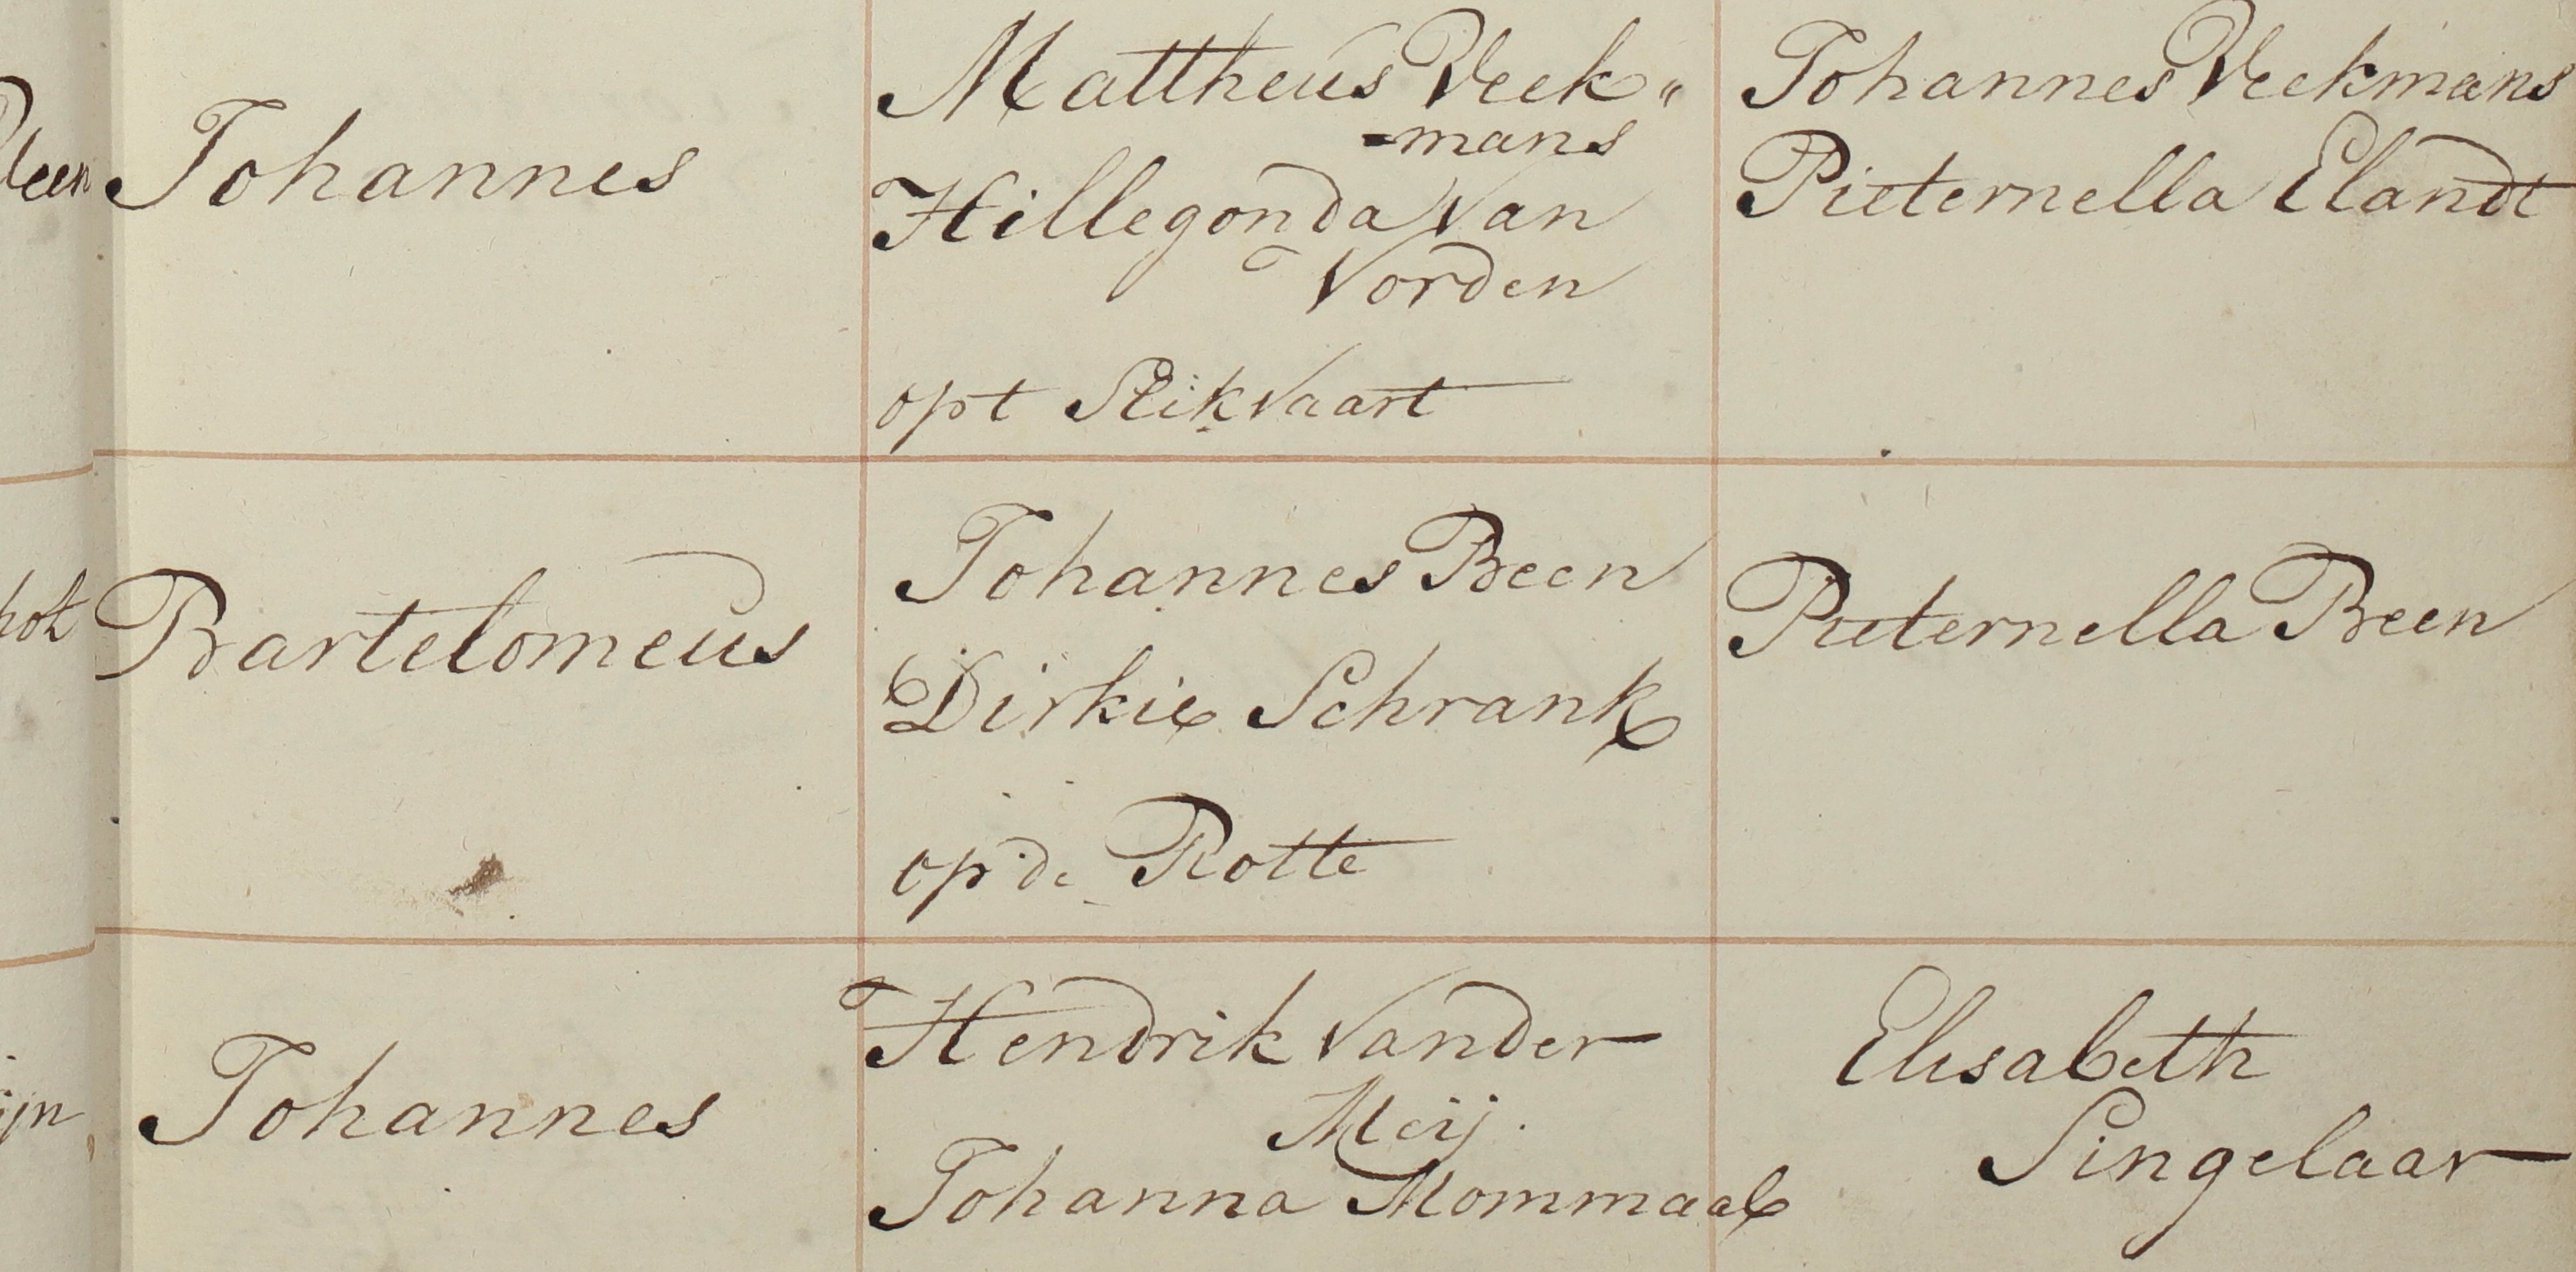 Johannes
Mattheus Veek„
=mans
Hillegonda Van
Vorden
opt Slikvaart
Johannes Veekmans
Pieternella Elandt
Bartelomeus
Johannes Been
Dirkie Schrank
op de Rotte
Pieternella Been
Johannes
Hendrik vander
Meij.
Johanna Mommaal
Elisabeth
Singelaar